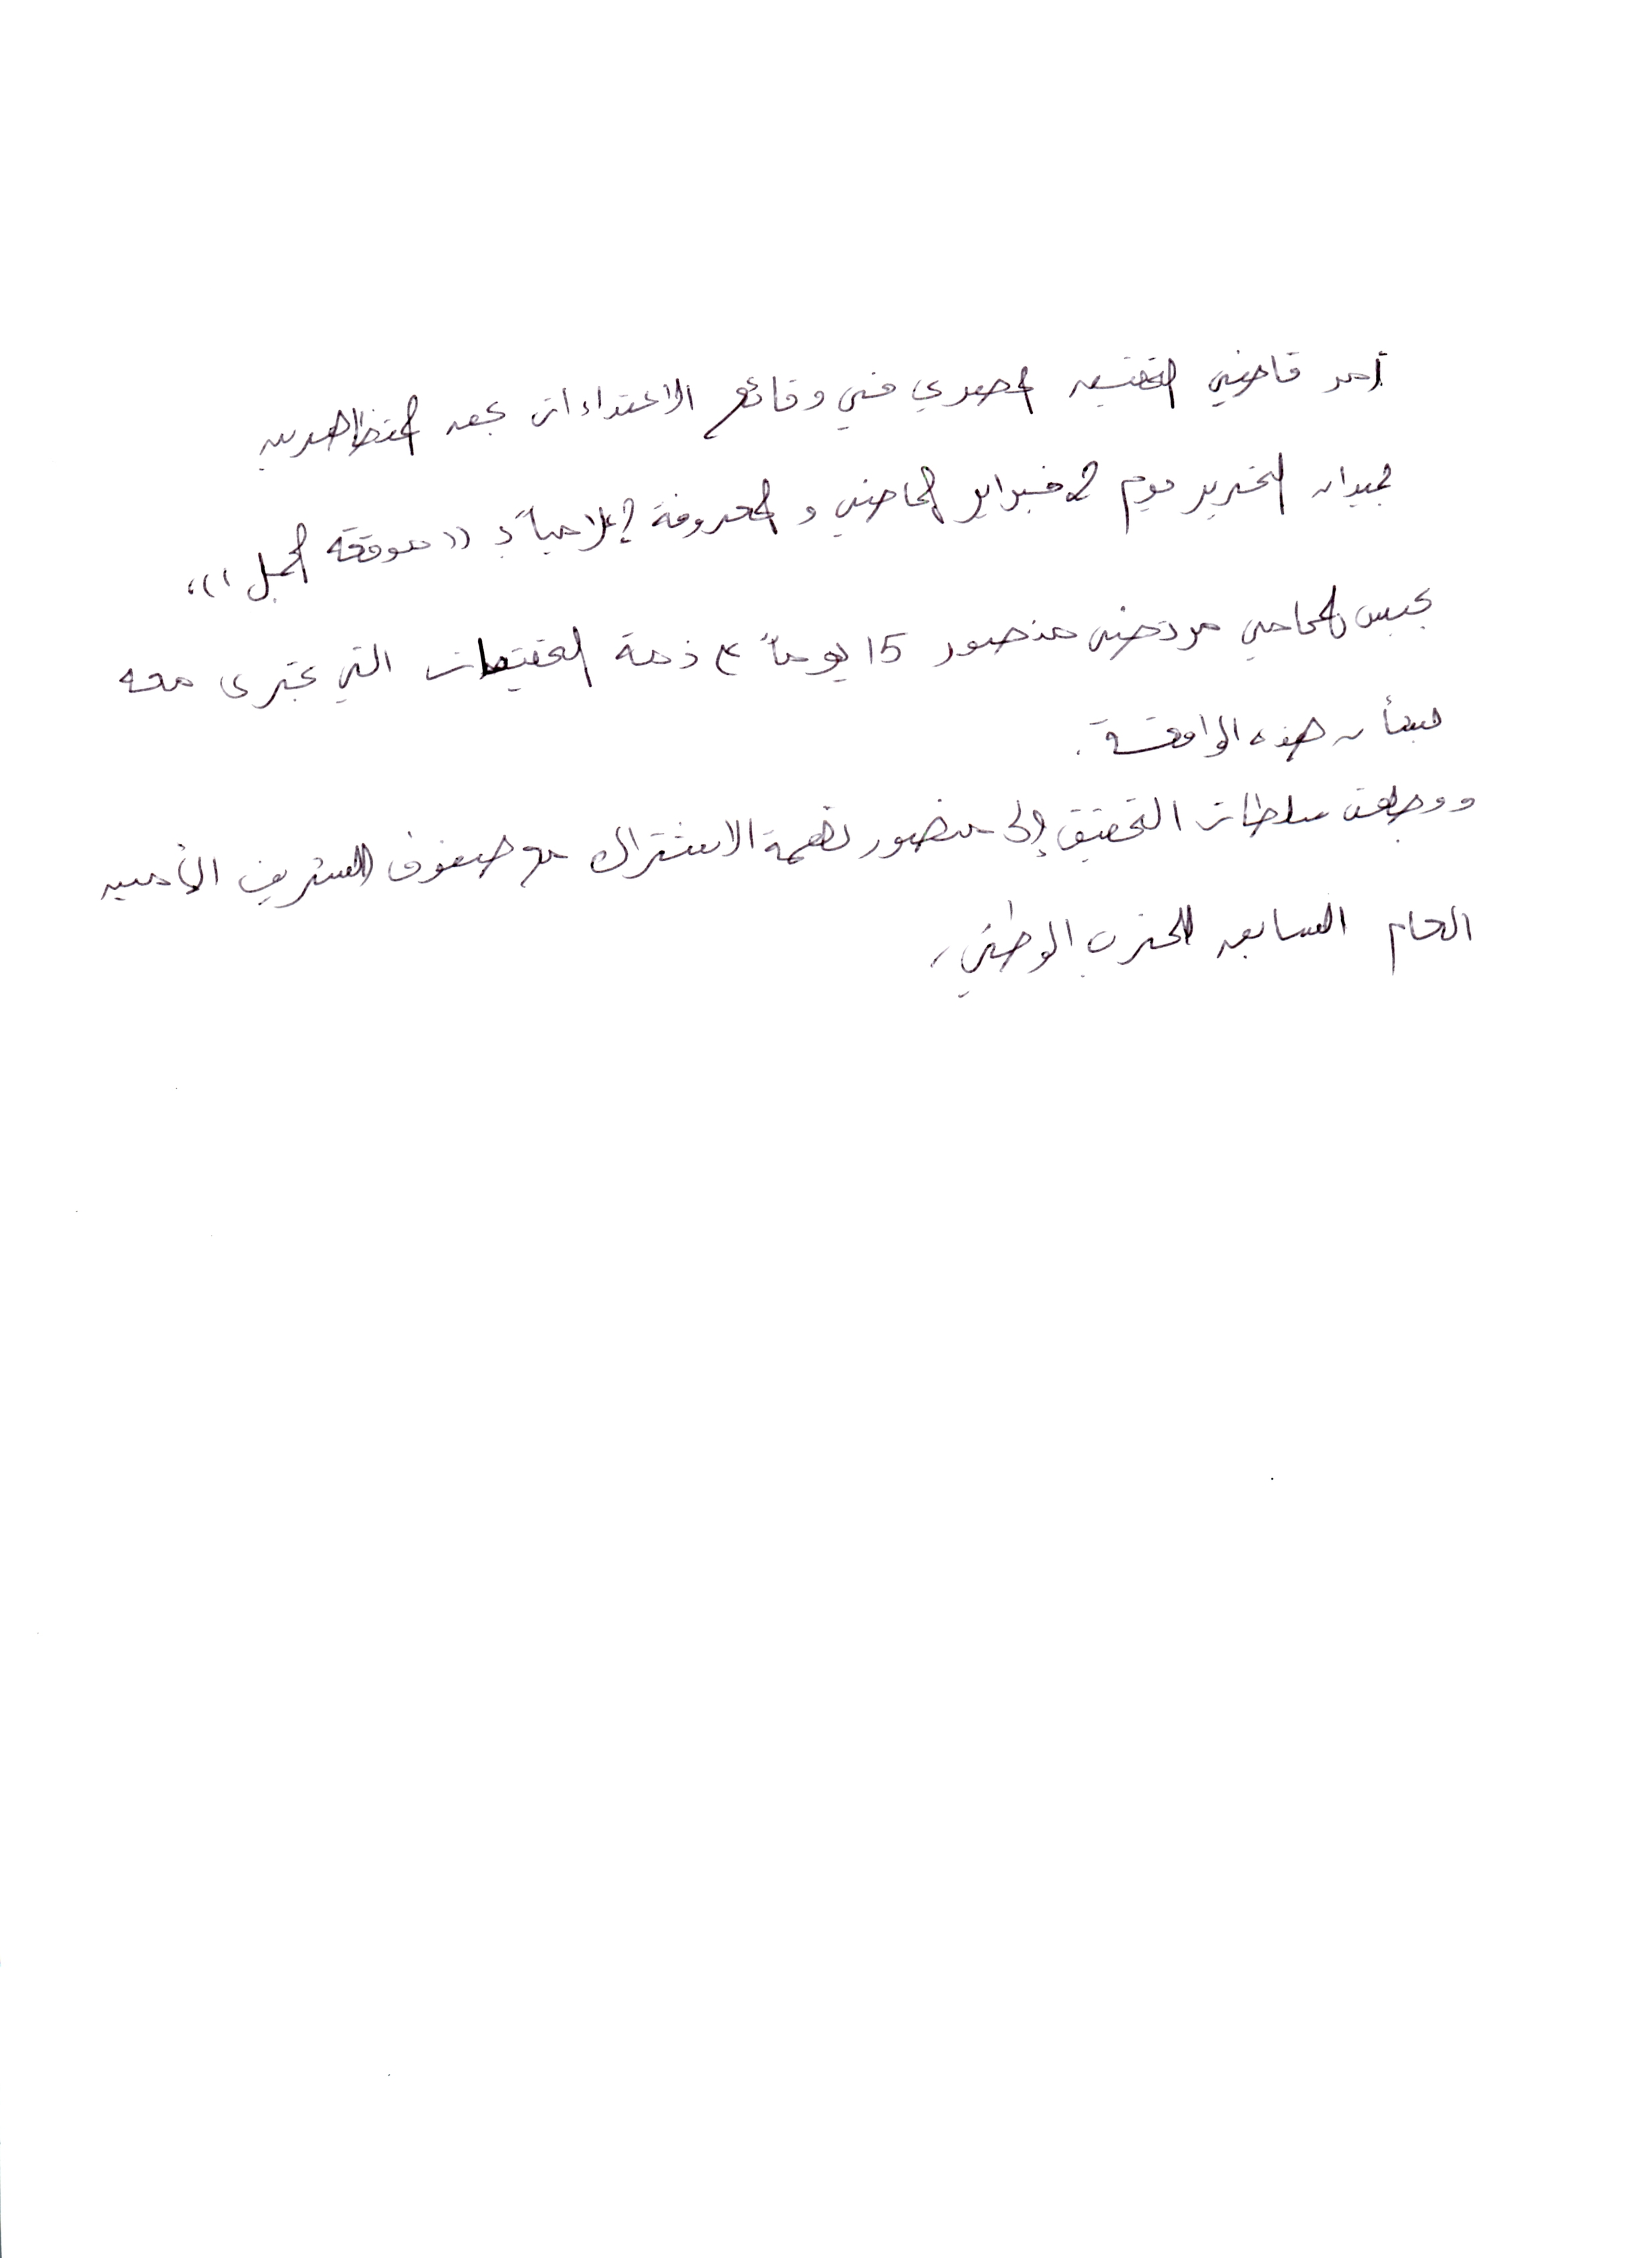 أمر قاضي التحقيق المصري في وقائع الاعتداءات بحق المتظاهرين
بميدان التحرير يوم 2 فبراير الماضي والمعروفة إعلامياً بـ ((موقعة الجمل))،
بحبس المحامي مرتضى منصور 15 يوماً ع ذمة التحقيقات التي تجرى معه
بشأن هذه الواقعة.
ووجهت سلطات التحقيق إلى منصور تهمة الاشتراك مع صفوت الشريف الأمين
العام السابق للحزب الوطني،